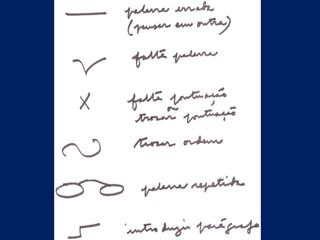 palavra errada
(pensar em outra)
falta palavra
falta pontuação
trocar pontuação
trocar ordem
palavra repetida
introduzir parágrafo